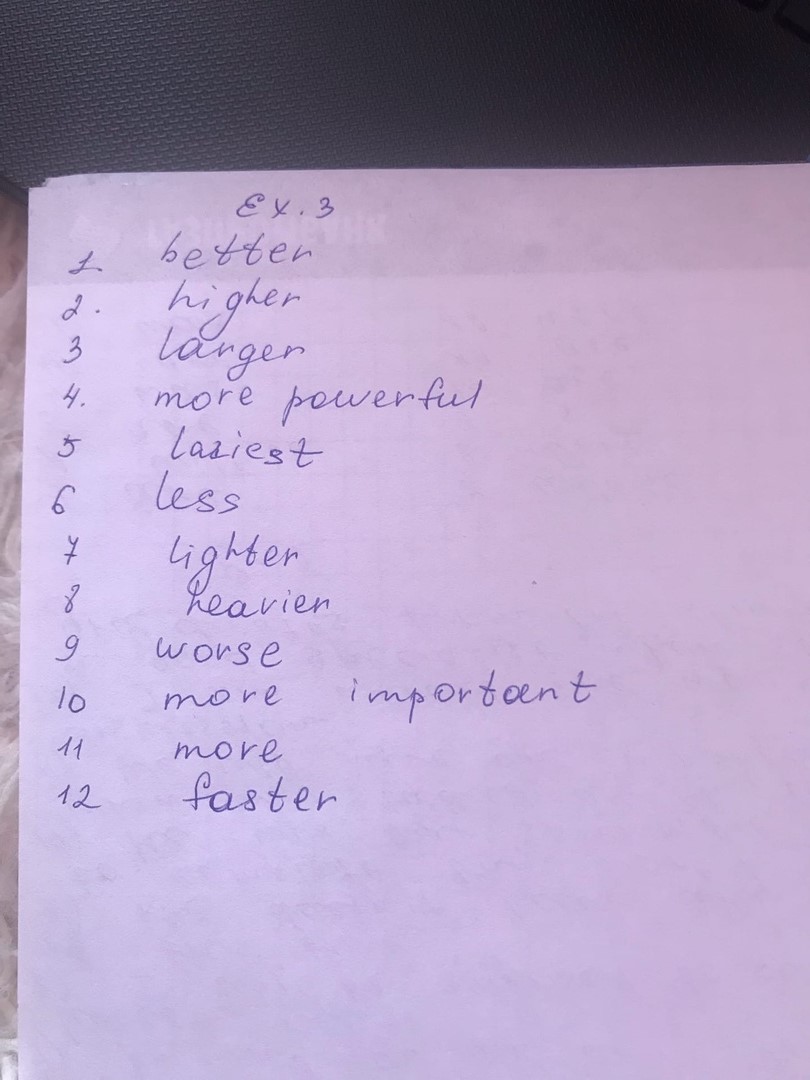 Ex. 3
1. better
2. higher
3 larger
4. more powerful
5 laziest
6 less
7 lighter
8 heavier
9 worse
10 more important
11 more
12 faster